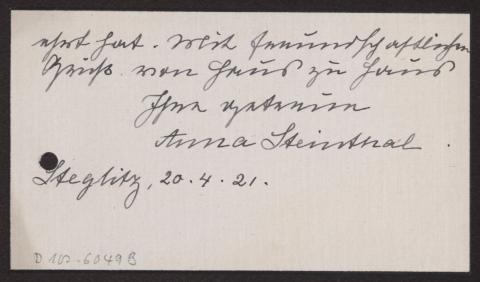 ehrt hat. Mit freundschaftlichem
Gruß von Haus zu Haus
Ihre getreue
Anna Steinthal.
Steglitz, 20.4.21.
D 102-6049 B